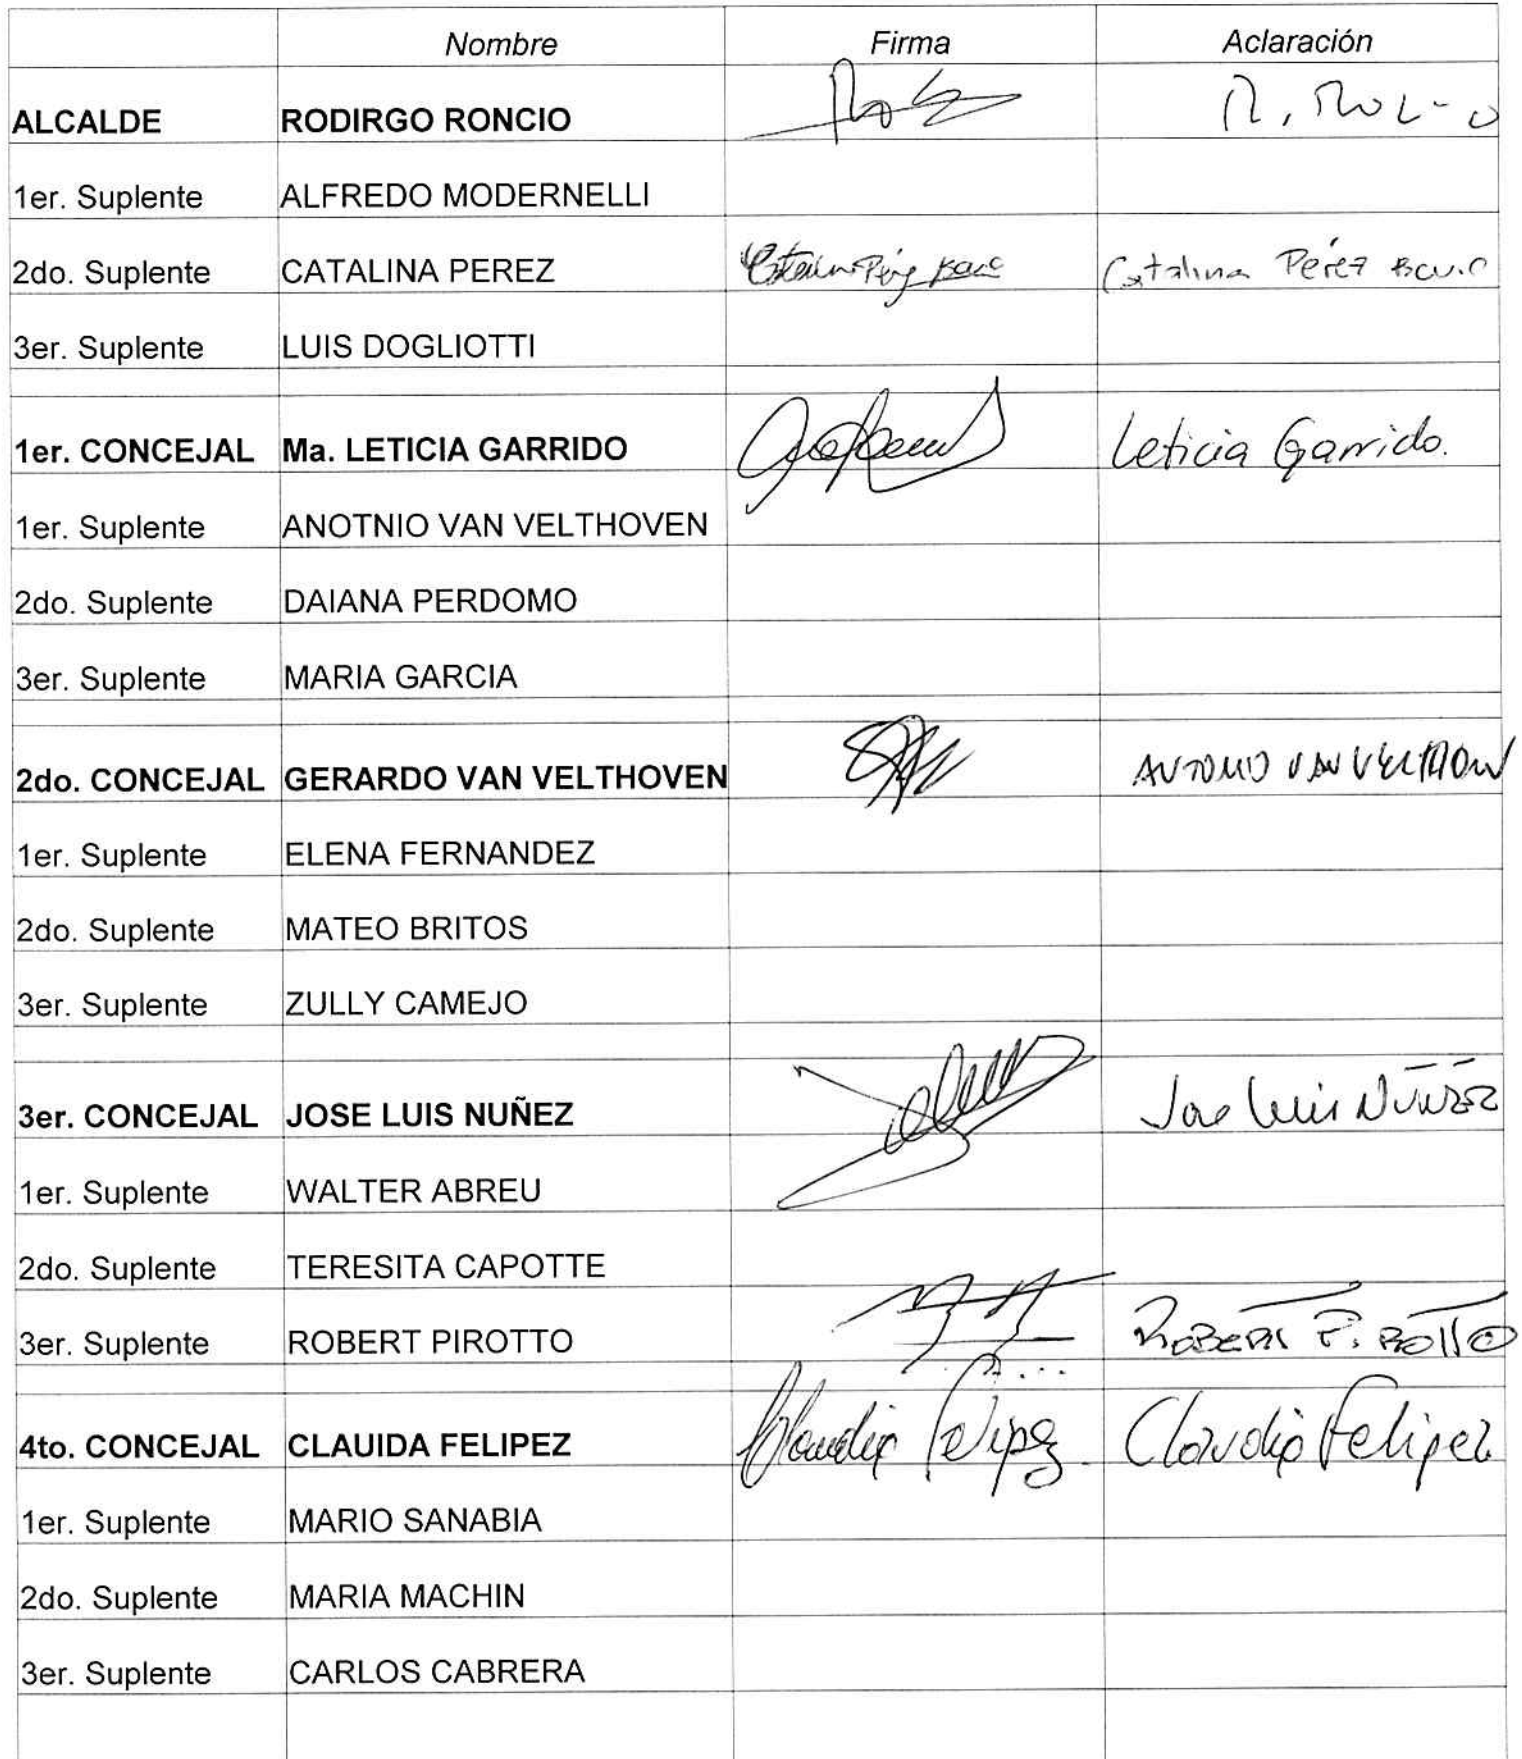 Nombre Firma Aclaración
ALCALDE RODIRGO RONCIO
1er. Suplente ALFREDO MODERNELLI
2do. Suplente CATALINA PEREZ Catalina Pérez
3er. Suplente LUIS DOGLIOTTI
1er. CONCEJAL Ma. LETICIA GARRIDO Leticia Garrido.
1er. Suplente ANOTNIO VAN VELTHOVEN
2do. Suplente DAIANA PERDOMO
3er. Suplente MARIA GARCIA
2do. CONCEJAL GERARDO VAN VELTHOVEN ANTONIO VAN
1er. Suplente ELENA FERNANDEZ
2do. Suplente MATEO BRITOS
3er. Suplente ZULLY CAMEJO
3er. CONCEJAL JOSE LUIS NUÑEZ Jose Luis Núñez
1er. Suplente WALTER ABREU
2do. Suplente TERESITA CAPOTTE
3er. Suplente ROBERT PIROTTO ROBERT PIROTTO
4to. CONCEJAL CLAUIDA FELIPEZ Claudia Felipez Claudia Felipez
1er. Suplente MARIO SANABIA
2do. Suplente MARIA MACHIN
3er. Suplente CARLOS CABRERA